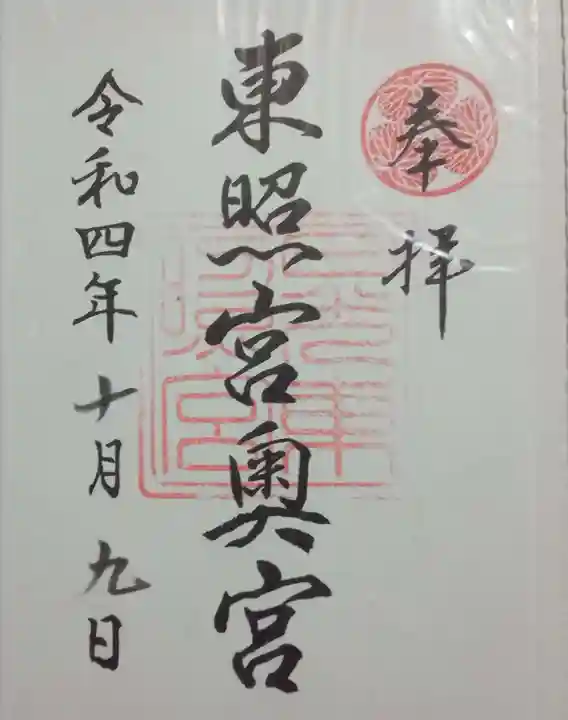 奉拝
東照宮奥宮
令和四年十月九日